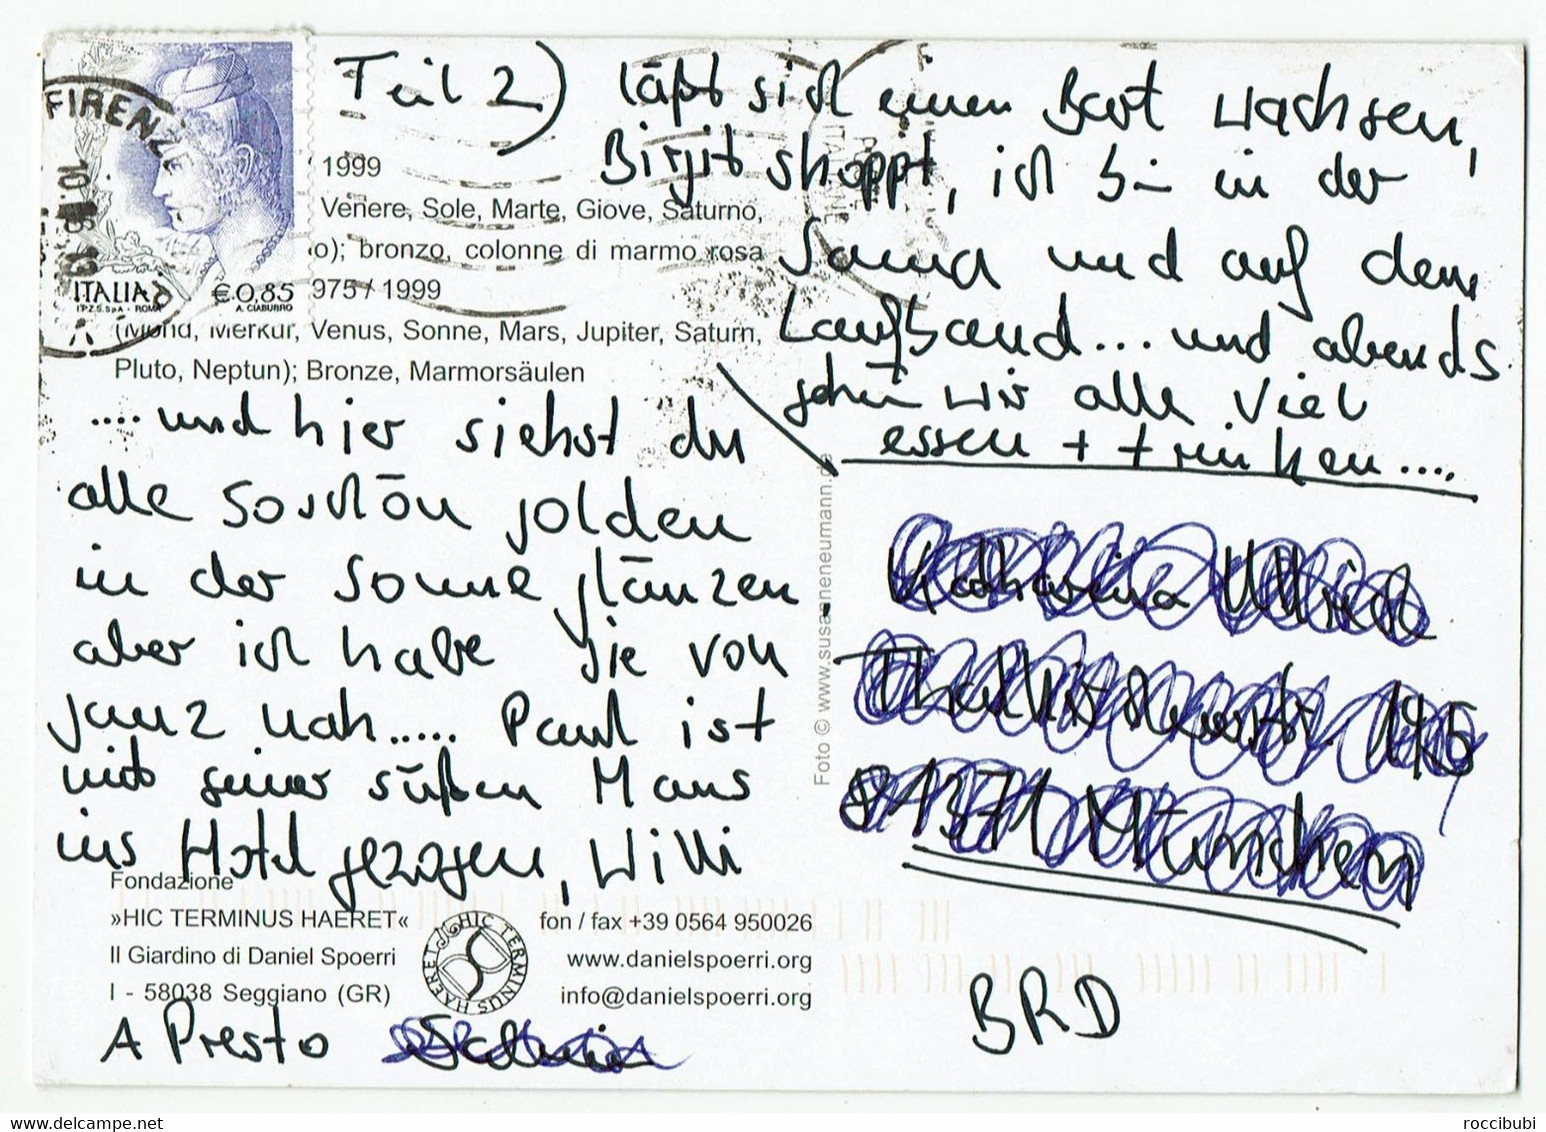 FIRENZE
ITALIA €0,85
I.P.Z.S. S.p.A. - ROMA A. CIABURRO
1999
Venere, Sole, Marte, Giove, Saturno,
o); bronzo, colonne di marmo rosa
975 / 1999
(Mond, Merkur, Venus, Sonne, Mars, Jupiter, Saturn,
Pluto, Neptun); Bronze, Marmorsäulen
.... und hier siehst du
alle so schön golden
in der Sonne glänzen
aber ich habe sie von
ganz nah..... Paul ist
mit seiner süßen Maus
ins Hotel gezogen, Willi
Teil 2) läßt sich einen Bart wachsen,
Birgit shoppt, ich bin in der
Sauna und auf dem
Laufband... und abends
gehen wir alle viel
essen + trinken....
Foto © www.susanneneumann.de
81371 München
BRD
Fondazione
»HIC TERMINUS HAERET«
Il Giardino di Daniel Spoerri
I - 58038 Seggiano (GR)
HIC TERMINUS HAERET
fon / fax +39 0564 950026
www.danielspoerri.org
info@danielspoerri.org
A Presto
roccibubi